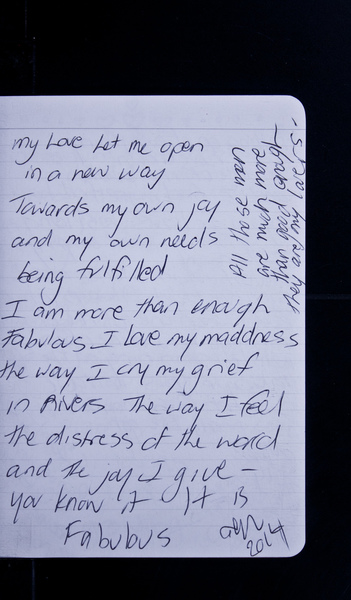 my Love Let me open
in a new way
Towards my own joy
and my own needs
being fulfilled
I am more than enough
Fabulous I Love my maddness
the way I cry my grief
in Rivers The way I feel
the distress of the world
and the joy I give –
you know it It is
Fabubus
2014
All those men
are much more
than good enough
they are my lovers.